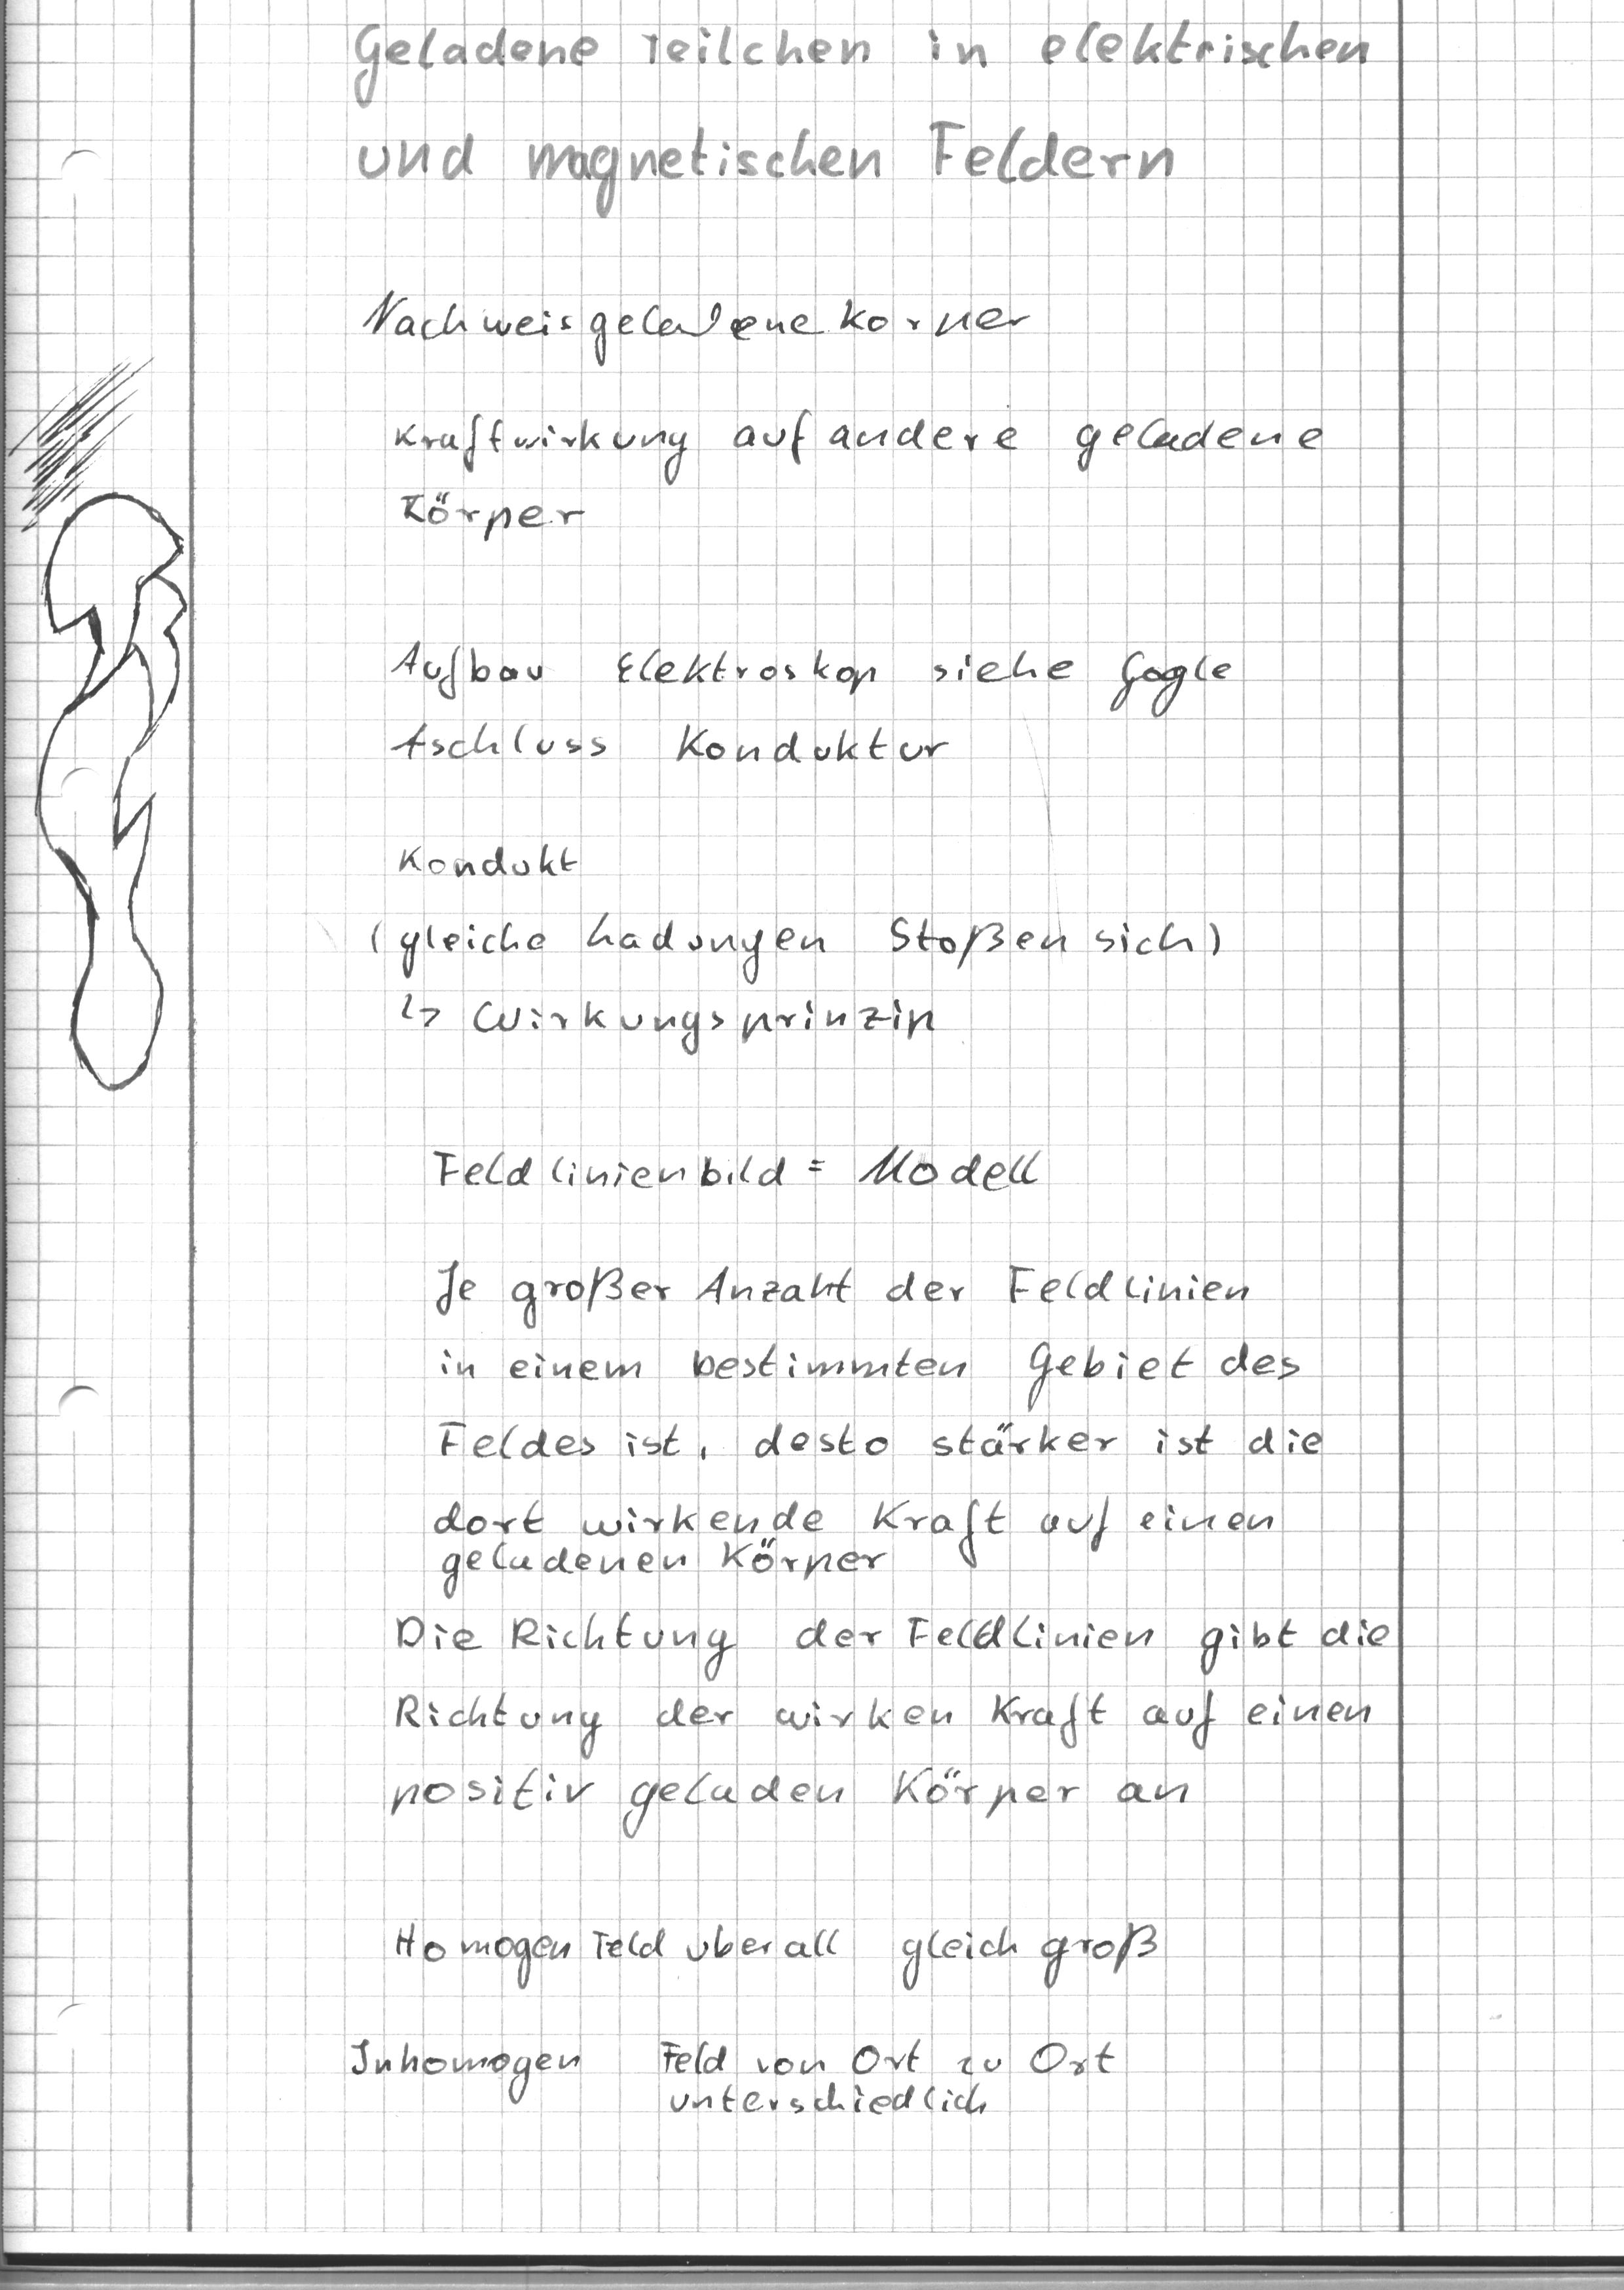 Geladene Teilchen in elektrischen
und magnetischen Feldern
Nachweis geladene korner
Kraftwirkung auf andere geladene
Körper
Aufbau Elektroskop siehe Gogle
Aschluss Konduktur
Kondukt
(gleiche Ladungen Stoßen sich)
↳ Wirkungsprinzip
Feldlinienbild = Modell
Je großer Anzahl der Feldlinien
in einem bestimmten Gebiet des
Feldes ist, desto stärker ist die
dort wirkende Kraft auf einen
geladenen Körper
Die Richtung der Feldlinien gibt die
Richtung der wirken Kraft auf einen
positiv geladen Körper an
Homogen Feld uberall gleich groß
Inhomogen Feld von Ort zu Ort
unterschiedlich